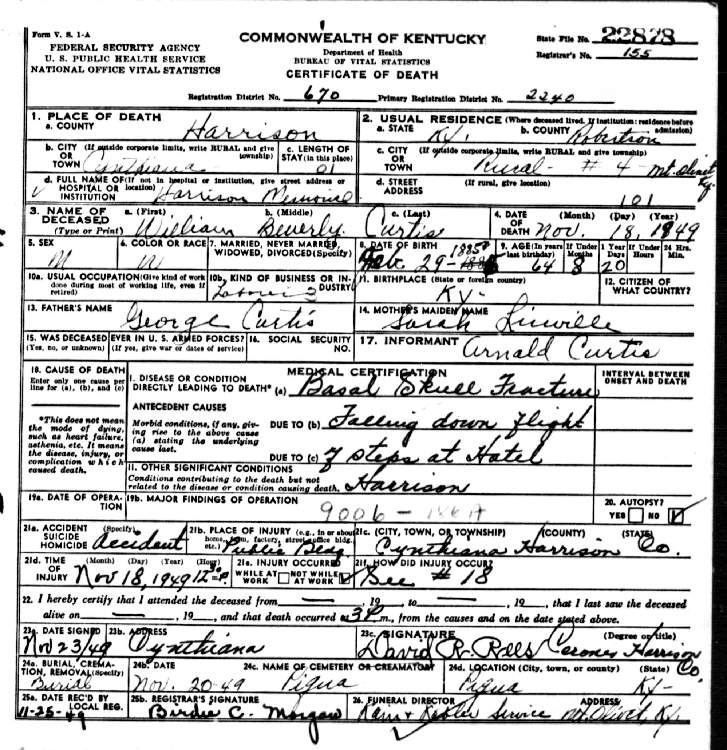 Form V. S. 1-A
FEDERAL SECURITY AGENCY
U. S. PUBLIC HEALTH SERVICE
NATIONAL OFFICE VITAL STATISTICS
COMMONWEALTH OF KENTUCKY
Department of Health
BUREAU OF VITAL STATISTICS
CERTIFICATE OF DEATH
State File No. 22878
Registrar's No. 155
Registration District No. 670 Primary Registration District No. 2240
1. PLACE OF DEATH
a. COUNTY Harrison
2. USUAL RESIDENCE (Where deceased lived. If institution: residence before admission)
a. STATE Ky. b. COUNTY Robertson
b. CITY (If outside corporate limits, write RURAL and give township) OR TOWN Cynthiana
c. LENGTH OF STAY (in this place) 01
c. CITY (If outside corporate limits, write RURAL and give township) OR TOWN Rural - # 4 - Mt. Olivet Ky.
d. FULL NAME OF (If not in hospital or institution, give street address or location) HOSPITAL OR INSTITUTION Harrison Memorial
d. STREET ADDRESS (If rural, give location) 101
3. NAME OF DECEASED (Type or Print)
a. (First) William b. (Middle) Beverly c. (Last) Curtis
4. DATE OF DEATH (Month) (Day) (Year) Nov. 18, 1949
5. SEX M
6. COLOR OR RACE W
7. MARRIED, NEVER MARRIED, WIDOWED, DIVORCED (Specify)
8. DATE OF BIRTH Feb. 29 - 1885
9. AGE (In years last birthday) 64 If Under 1 Year Months 8 Days 20 If Under 24 Hrs. Hours Min.
10a. USUAL OCCUPATION (Give kind of work done during most of working life, even if retired)
10b. KIND OF BUSINESS OR INDUSTRY Laboring
11. BIRTHPLACE (State or foreign country) Ky -
12. CITIZEN OF WHAT COUNTRY?
13. FATHER'S NAME George Curtis
14. MOTHER'S MAIDEN NAME Sarah Linville
15. WAS DECEASED EVER IN U. S. ARMED FORCES? (Yes, no, or unknown) (If yes, give war or dates of service)
16. SOCIAL SECURITY NO.
17. INFORMANT Arnald Curtis
18. CAUSE OF DEATH
Enter only one cause per line for (a), (b), and (c)
*This does not mean the mode of dying, such as heart failure, asthenia, etc. It means the disease, injury, or complication which caused death.
MEDICAL CERTIFICATION
INTERVAL BETWEEN ONSET AND DEATH
I. DISEASE OR CONDITION DIRECTLY LEADING TO DEATH* (a) Basal Skull Fracture
ANTECEDENT CAUSES
Morbid conditions, if any, giving rise to the above cause (a) stating the underlying cause last.
DUE TO (b) Falling down flight
DUE TO (c) of steps at Hotel
II. OTHER SIGNIFICANT CONDITIONS
Conditions contributing to the death but not related to the disease or condition causing death. Harrison
19a. DATE OF OPERATION
19b. MAJOR FINDINGS OF OPERATION
9006 -
20. AUTOPSY?
YES NO
21a. ACCIDENT SUICIDE HOMICIDE (Specify) Accident
21b. PLACE OF INJURY (e.g., in or about home, farm, factory, street, office bldg. etc.) Public Bldg.
21c. (CITY, TOWN, OR TOWNSHIP) (COUNTY) (STATE) Cynthiana Harrison Co.
21d. TIME OF INJURY (Month) (Day) (Year) (Hour) Nov 18, 1949 12:30 P
21e. INJURY OCCURRED WHILE AT WORK NOT WHILE AT WORK
21f. HOW DID INJURY OCCUR? See # 18
22. I hereby certify that I attended the deceased from —, 19—, to —, 19—, that I last saw the deceased
alive on —, 19—, and that death occurred at 3P m., from the causes and on the date stated above.
23a. DATE SIGNED Nov 23/49
23b. ADDRESS Cynthiana
23c. SIGNATURE (Degree or title) David R. Rees Coroner Harrison Co
24a. BURIAL, CREMATION, REMOVAL (Specify) Burial
24b. DATE Nov. 20-49
24c. NAME OF CEMETERY OR CREMATORY Piqua
24d. LOCATION (City, town, or county) (State) Piqua Ky -
25a. DATE REC'D BY LOCAL REG. 11-25-49
25b. REGISTRAR'S SIGNATURE Birdie C. Morgan
26. FUNERAL DIRECTOR ADDRESS Kain & Service Mt. Olivet, Ky.